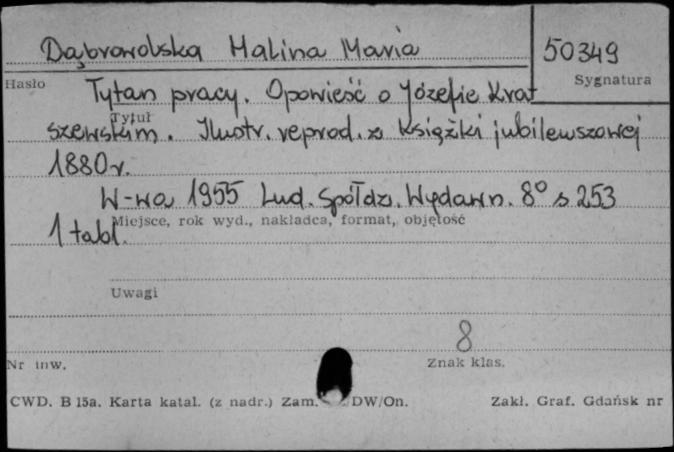 Dąbrowolska Halina Maria
50349
Hasło
Sygnatura
Tytan pracy. Opowieść o Józefie Krat
Tytuł
szewskim. Ilustr. reprod. z książki jubileuszowej
1880 r.
W-wa 1955 Lud. Spółdz. Wydawn. 8° s 253
Miejsce, rok wyd., nakładca, format, objętość
1 tabl.
Uwagi
8
Nr inw.
Znak klas.
CWD. B 15a. Karta katal. (z nadr.) Zam. DW/On.
Zakł. Graf. Gdańsk nr